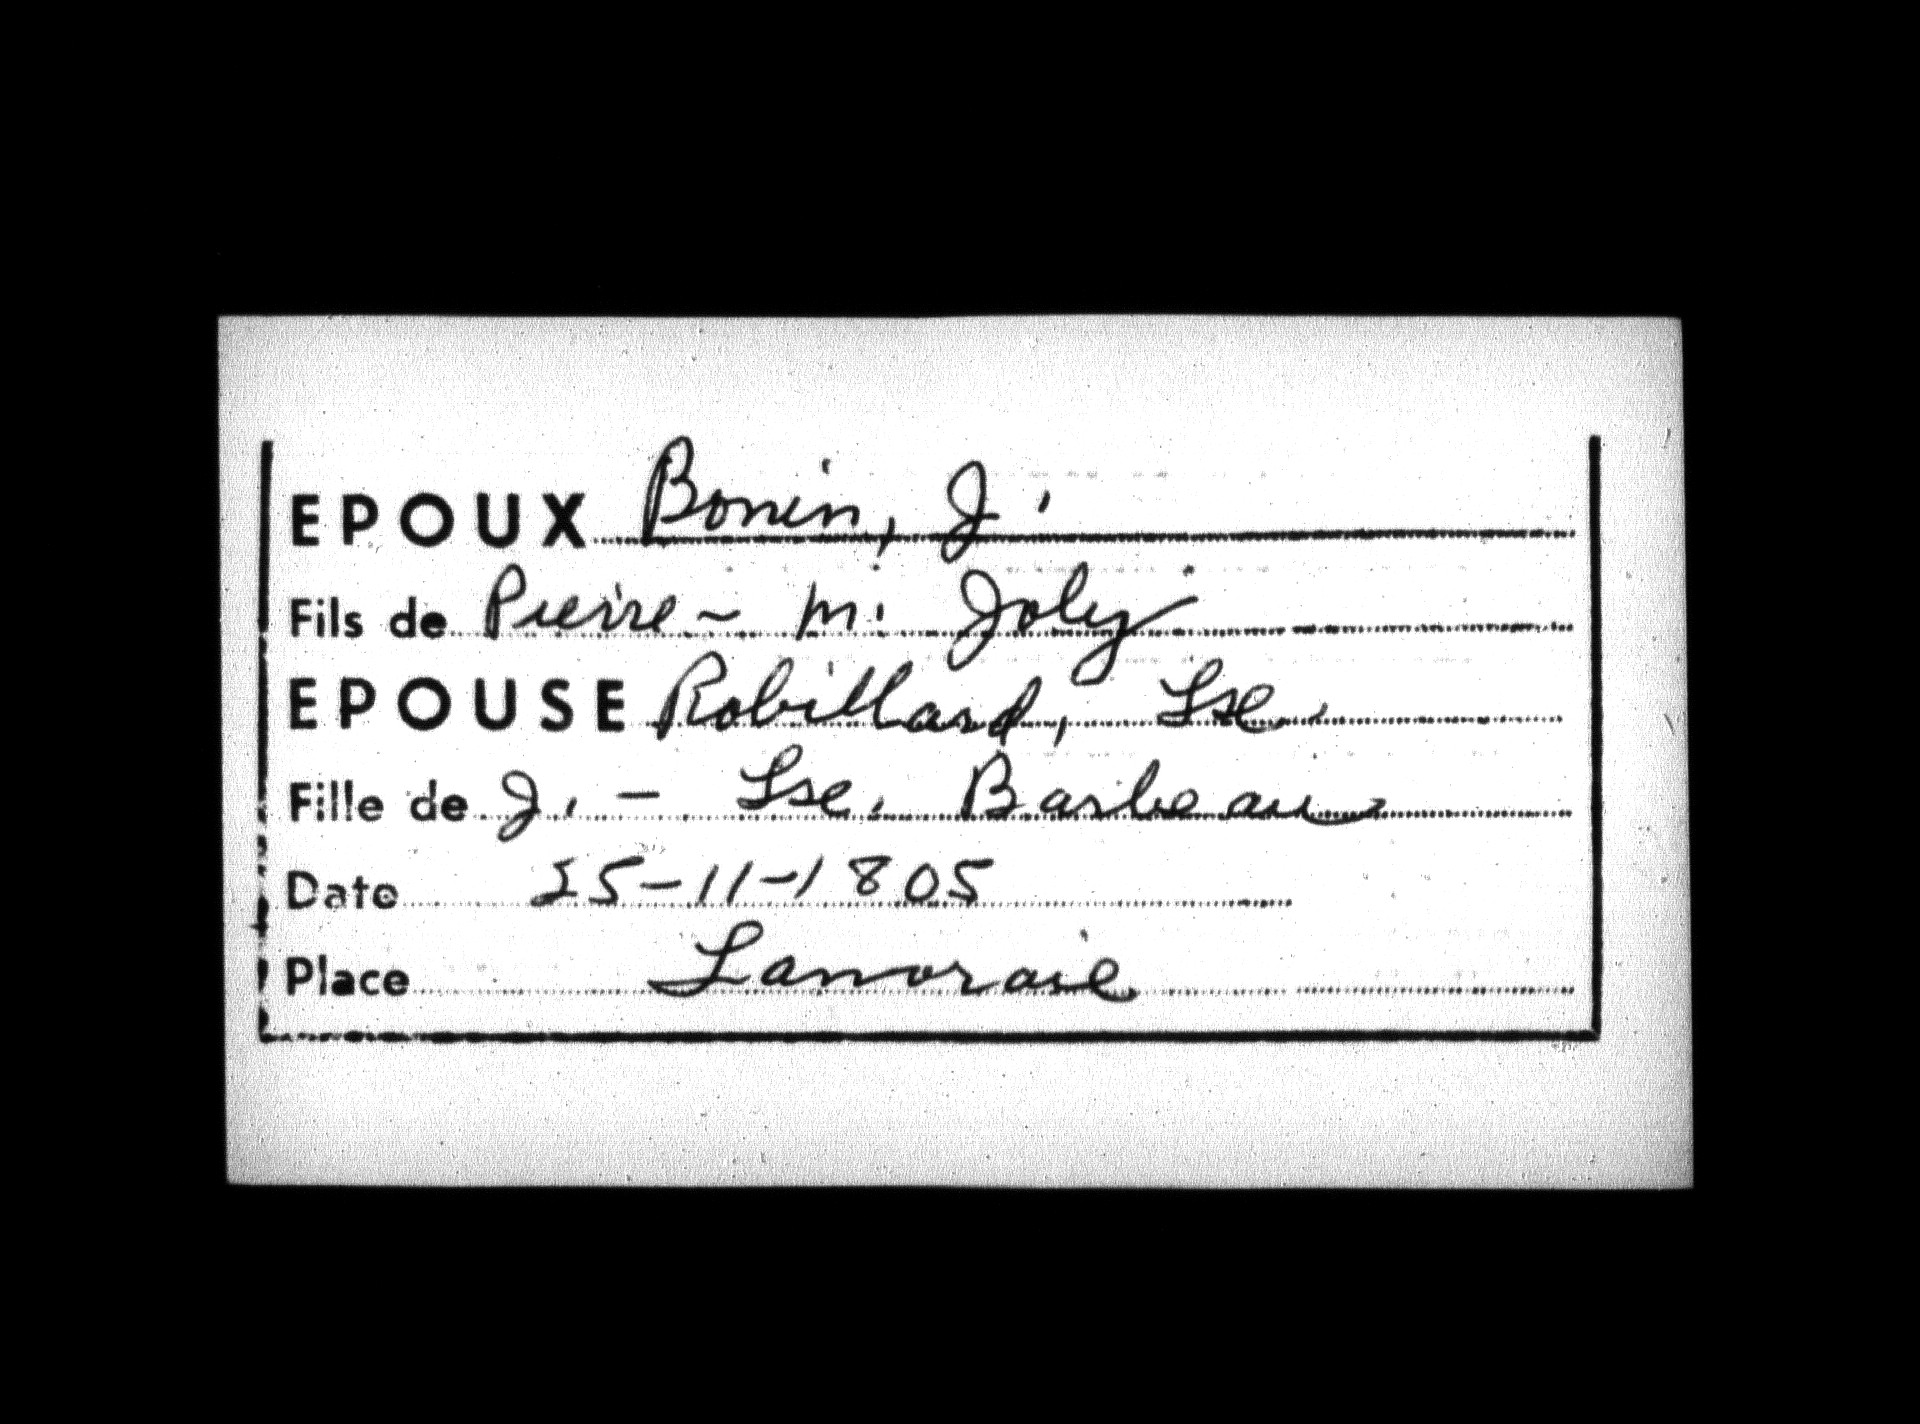 EPOUX Bonin, J.
Fils de Pierre - M. Joly
EPOUSE Robillard, Lse.
Fille de J. - Lse. Barbeau
Date 25-11-1805
Place Lanoraie